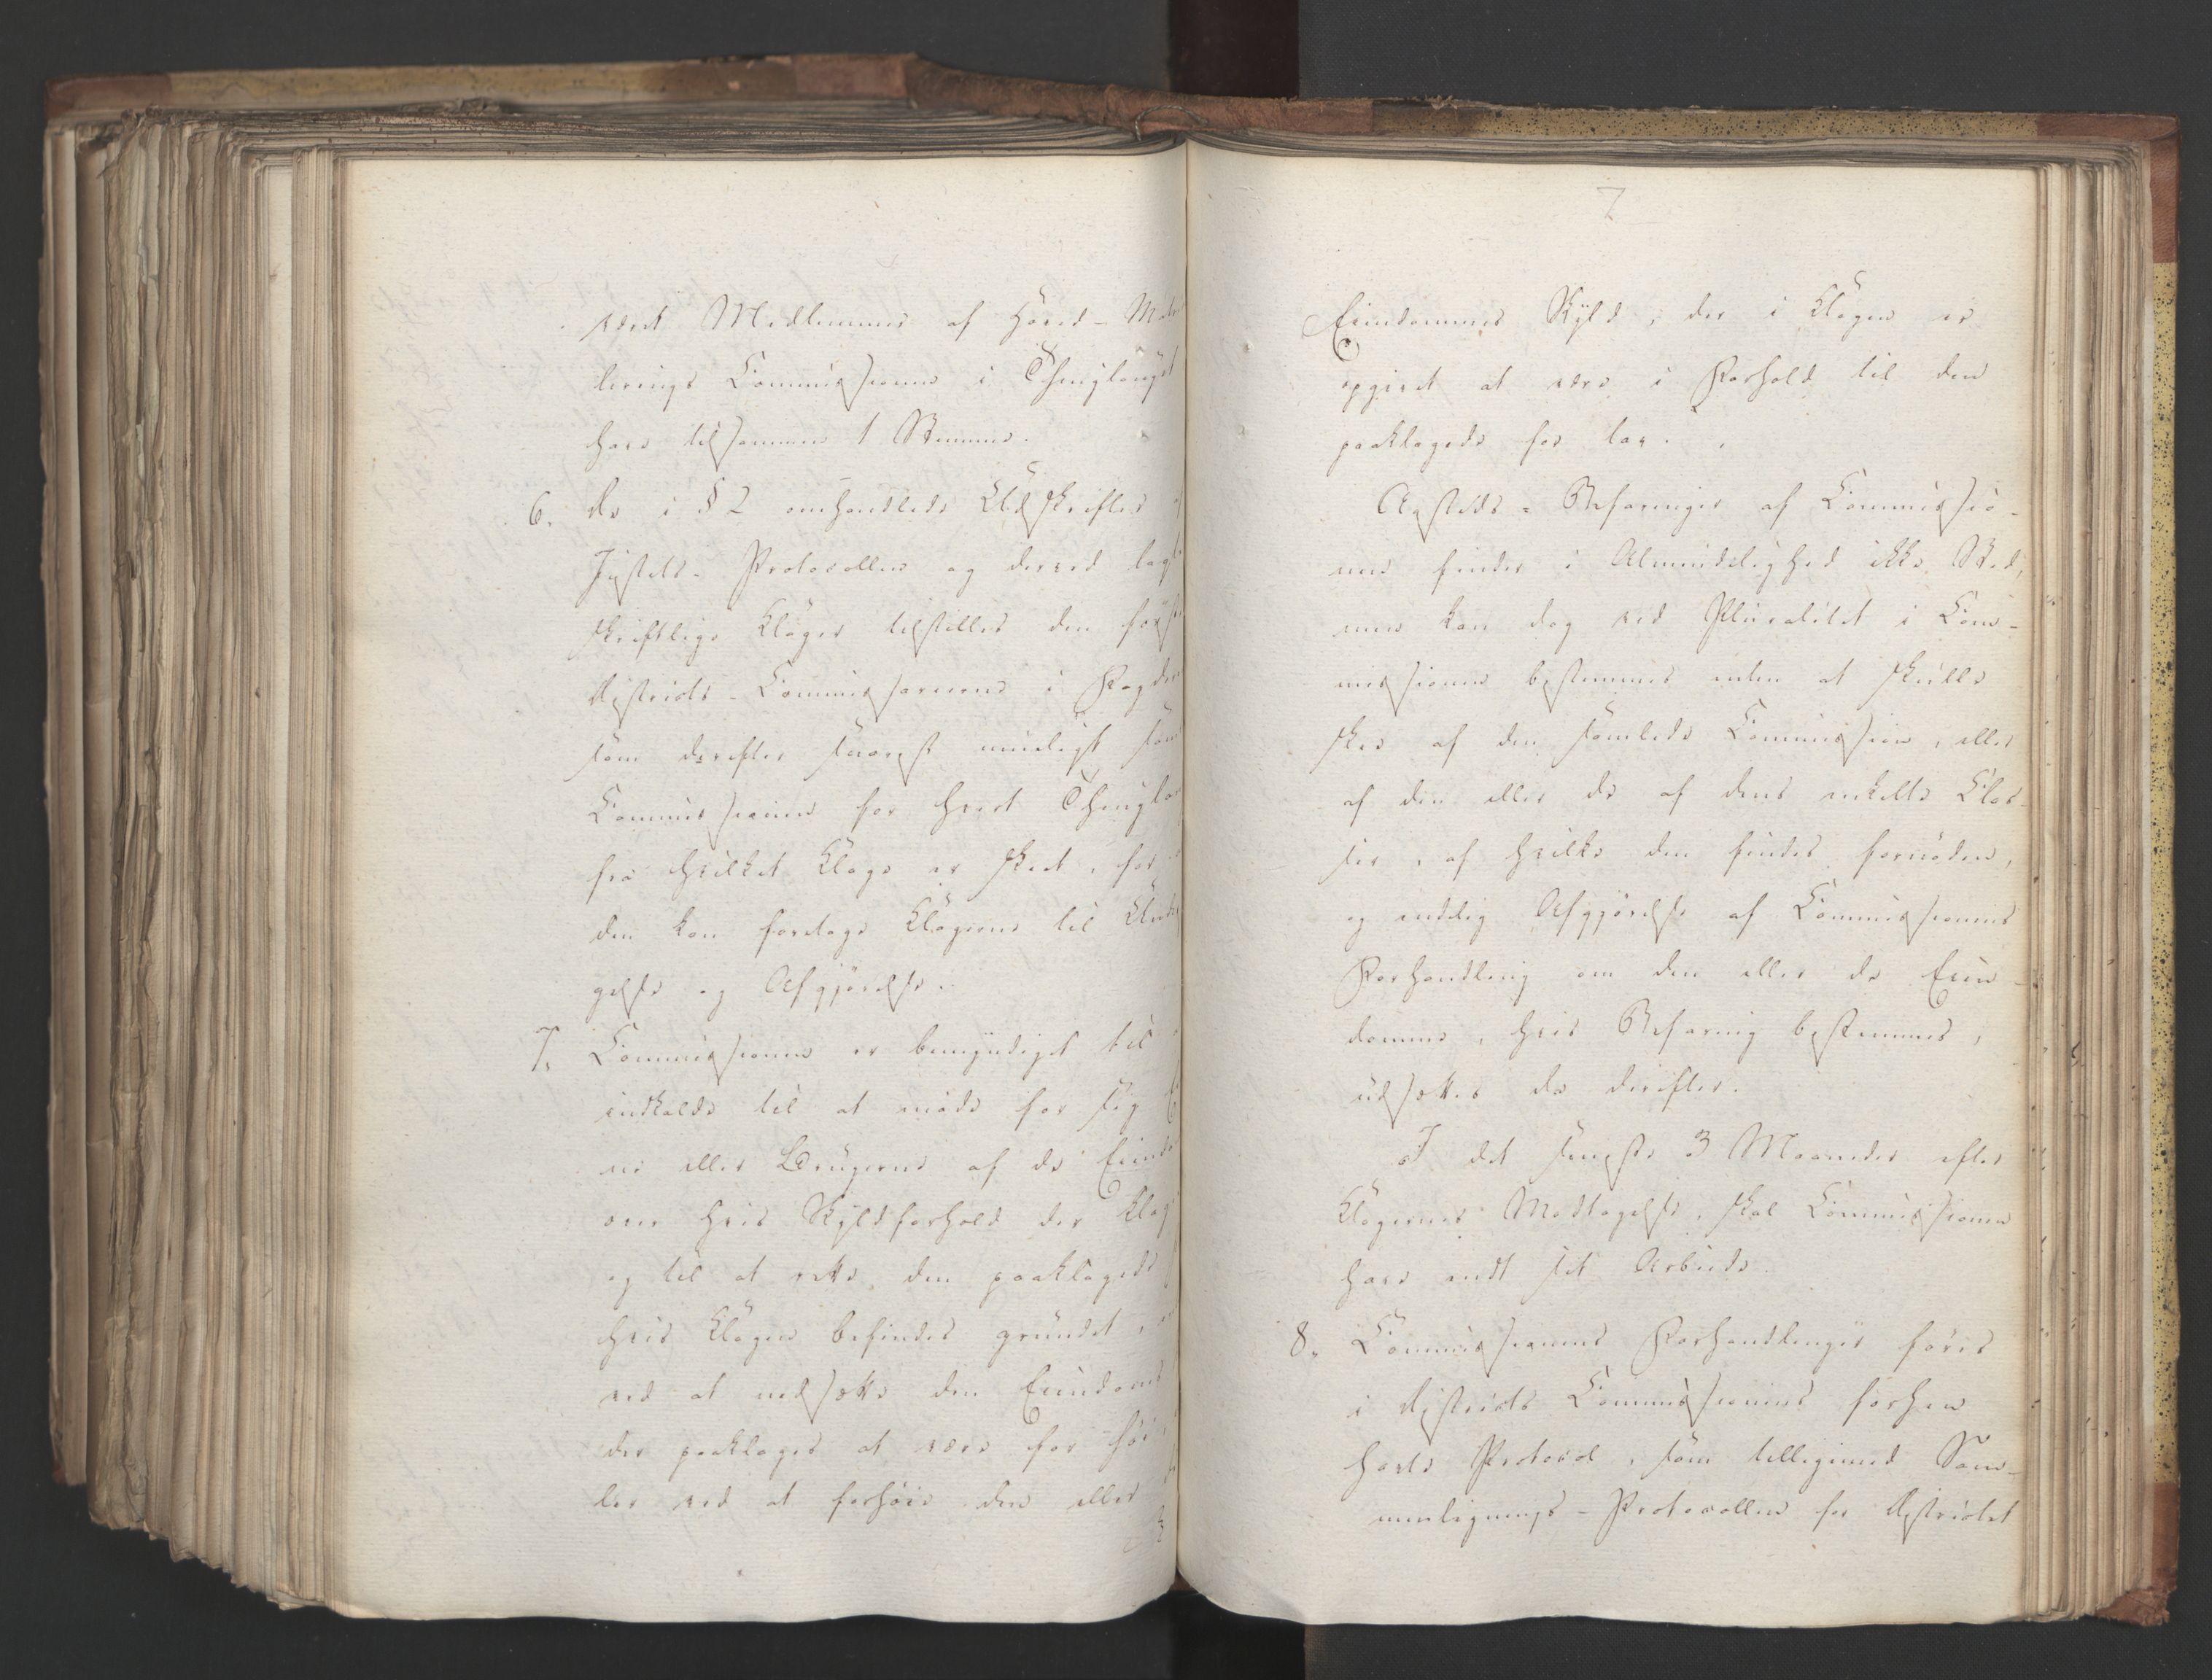 været Medlemmer af Hoved-Matri
lerings Commissionen i Thinglauget
have tilsammen 1 Stemme.
6. De i § 2 omhandlede Udskrifter
Justits-Protocollen og derved lagt
skriftlige Klager tilstilles den første
Districts-Commissairerne i Fogder
som derefter snarest mueligt sam
Commissionen for hvert Thinglau
fra hvilket Klage er skeet, for
den kan foretage Klagerne til Unders
gelse og Afgjørelse.
7. Commissionen er bemyndiget til
indkalde til at møde for sig E
ne eller Brugerne af de Eiendo
over hvis Skyldforhold der klag
og til at rette den paaklagede
hvis Klagen befindes grundet,
ved at nedsætte den Eiendoms
der paaklages at være for høi
ler ved at forhøie den eller
7
Eiendommes Skyld, der i Klagen er
opgivet at være i Forhold til den
paaklagede for lav.
Aasteds-Befaringer af Commissio-
nen finder i Almindelighed ikke Sted,
men kan dog ved Pluralitet i Com-
missionen bestemmes enten at skulle
skee af den samlede Commission, eller
af den eller de af dens enkelte Clas-
ser, af hvilke den findes fornøden,
og endelig Afgjørelse af Commissionens
Forhandling om den eller de Eien-
domme, hvis Befaring bestemmes,
udsættes da derefter.
I det seneste 3 Maaneder efter
Klagernes Modtagelse, skal Commissionen
have endt sit Arbeide.
8. Commissionens Forhandlinger føres
i Districts Commissionens forhen
havte Protocol, som tilligemed Sam-
menlignings-Protocollen for Districtet